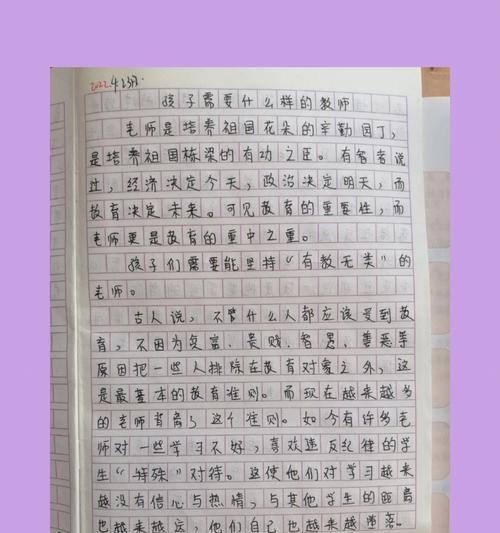 2022.4.23日.
孩子需要什么样的教师
老师是培养祖国花朵的辛勤园丁，
是培养祖国栋梁的有功之臣。有智者说
过，经济决定今天，政治决定明天，而
教育决定未来。可见教育的重要性，而
老师更是教育的重中之重。
孩子们需要能坚持“有教无类”的
老师。
古人说，不管什么人都应该受到教
育，不因为贫富、贵贱、智愚、善恶等
原因把一些人排除在教育对象之外，这
是最基本的教育准则。而现在越来越多
的老师背离了这个准则。如今有许多老
师对一些学习不好，喜欢违反纪律的学
生“特殊”对待。这使他们对学习越来
越没有信心与热情，与其他学生的距离
也越来越远，他们自己也越来越堕落。